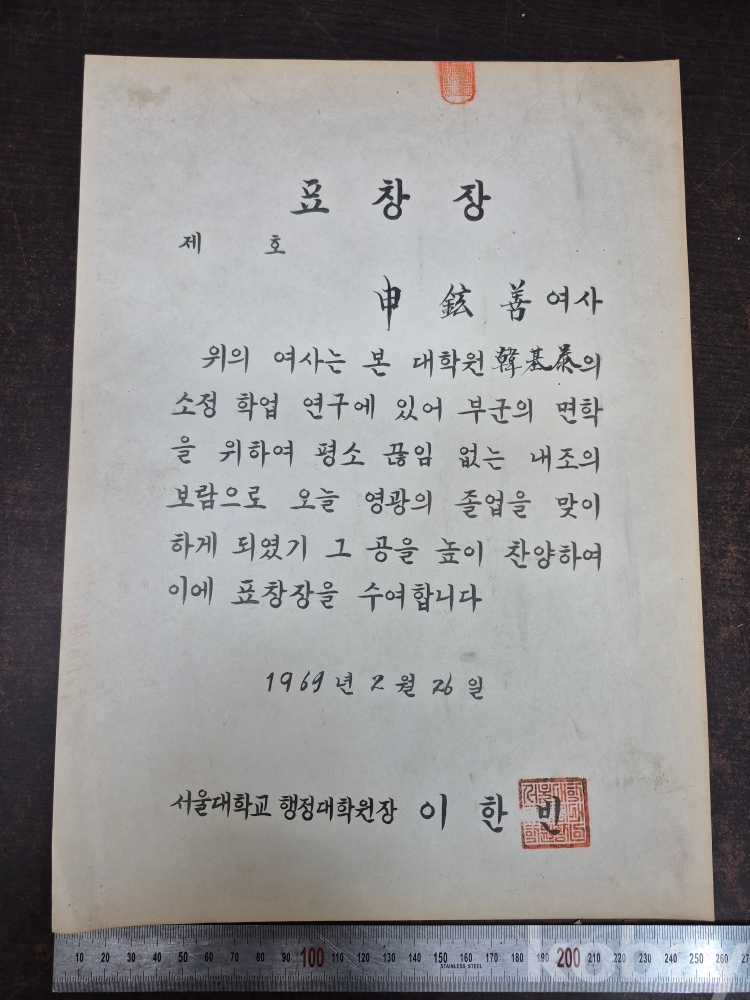 표 창 장
제 호
申 鉉 善 여사
위의 여사는 본 대학원 韓基泰의
소정 학업 연구에 있어 부군의 면학
을 위하여 평소 끊임 없는 내조의
보람으로 오늘 영광의 졸업을 맞이
하게 되였기 그 공을 높이 찬양하여
이에 표창장을 수여합니다
1969 년 2 월 26 일
서울대학교 행정대학원장 이 한 빈
10 20 30 40 50 60 70 80 90 100 110 120 130 140 150 160 170 180 190 200 210 220 230 240 250 260
STAINLESS STEEL